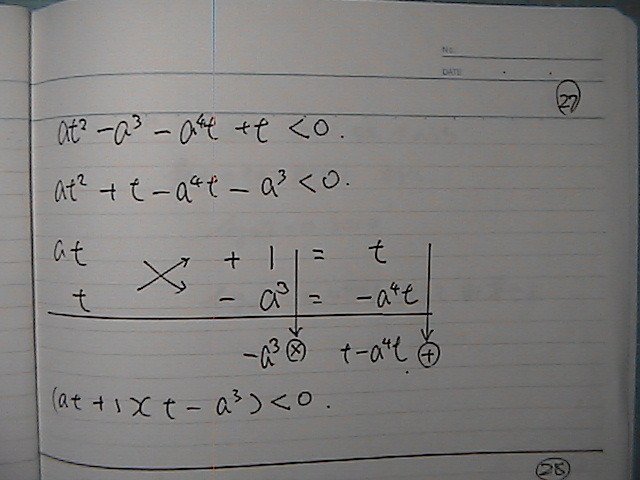 No.
DATE
27
at² - a³ - a⁴t + t < 0.
at² + t - a⁴t - a³ < 0.
at + 1 = t
t - a³ = -a⁴t
-a³ ⊗ t - a⁴t ⊕
(at + 1)(t - a³) < 0.
28